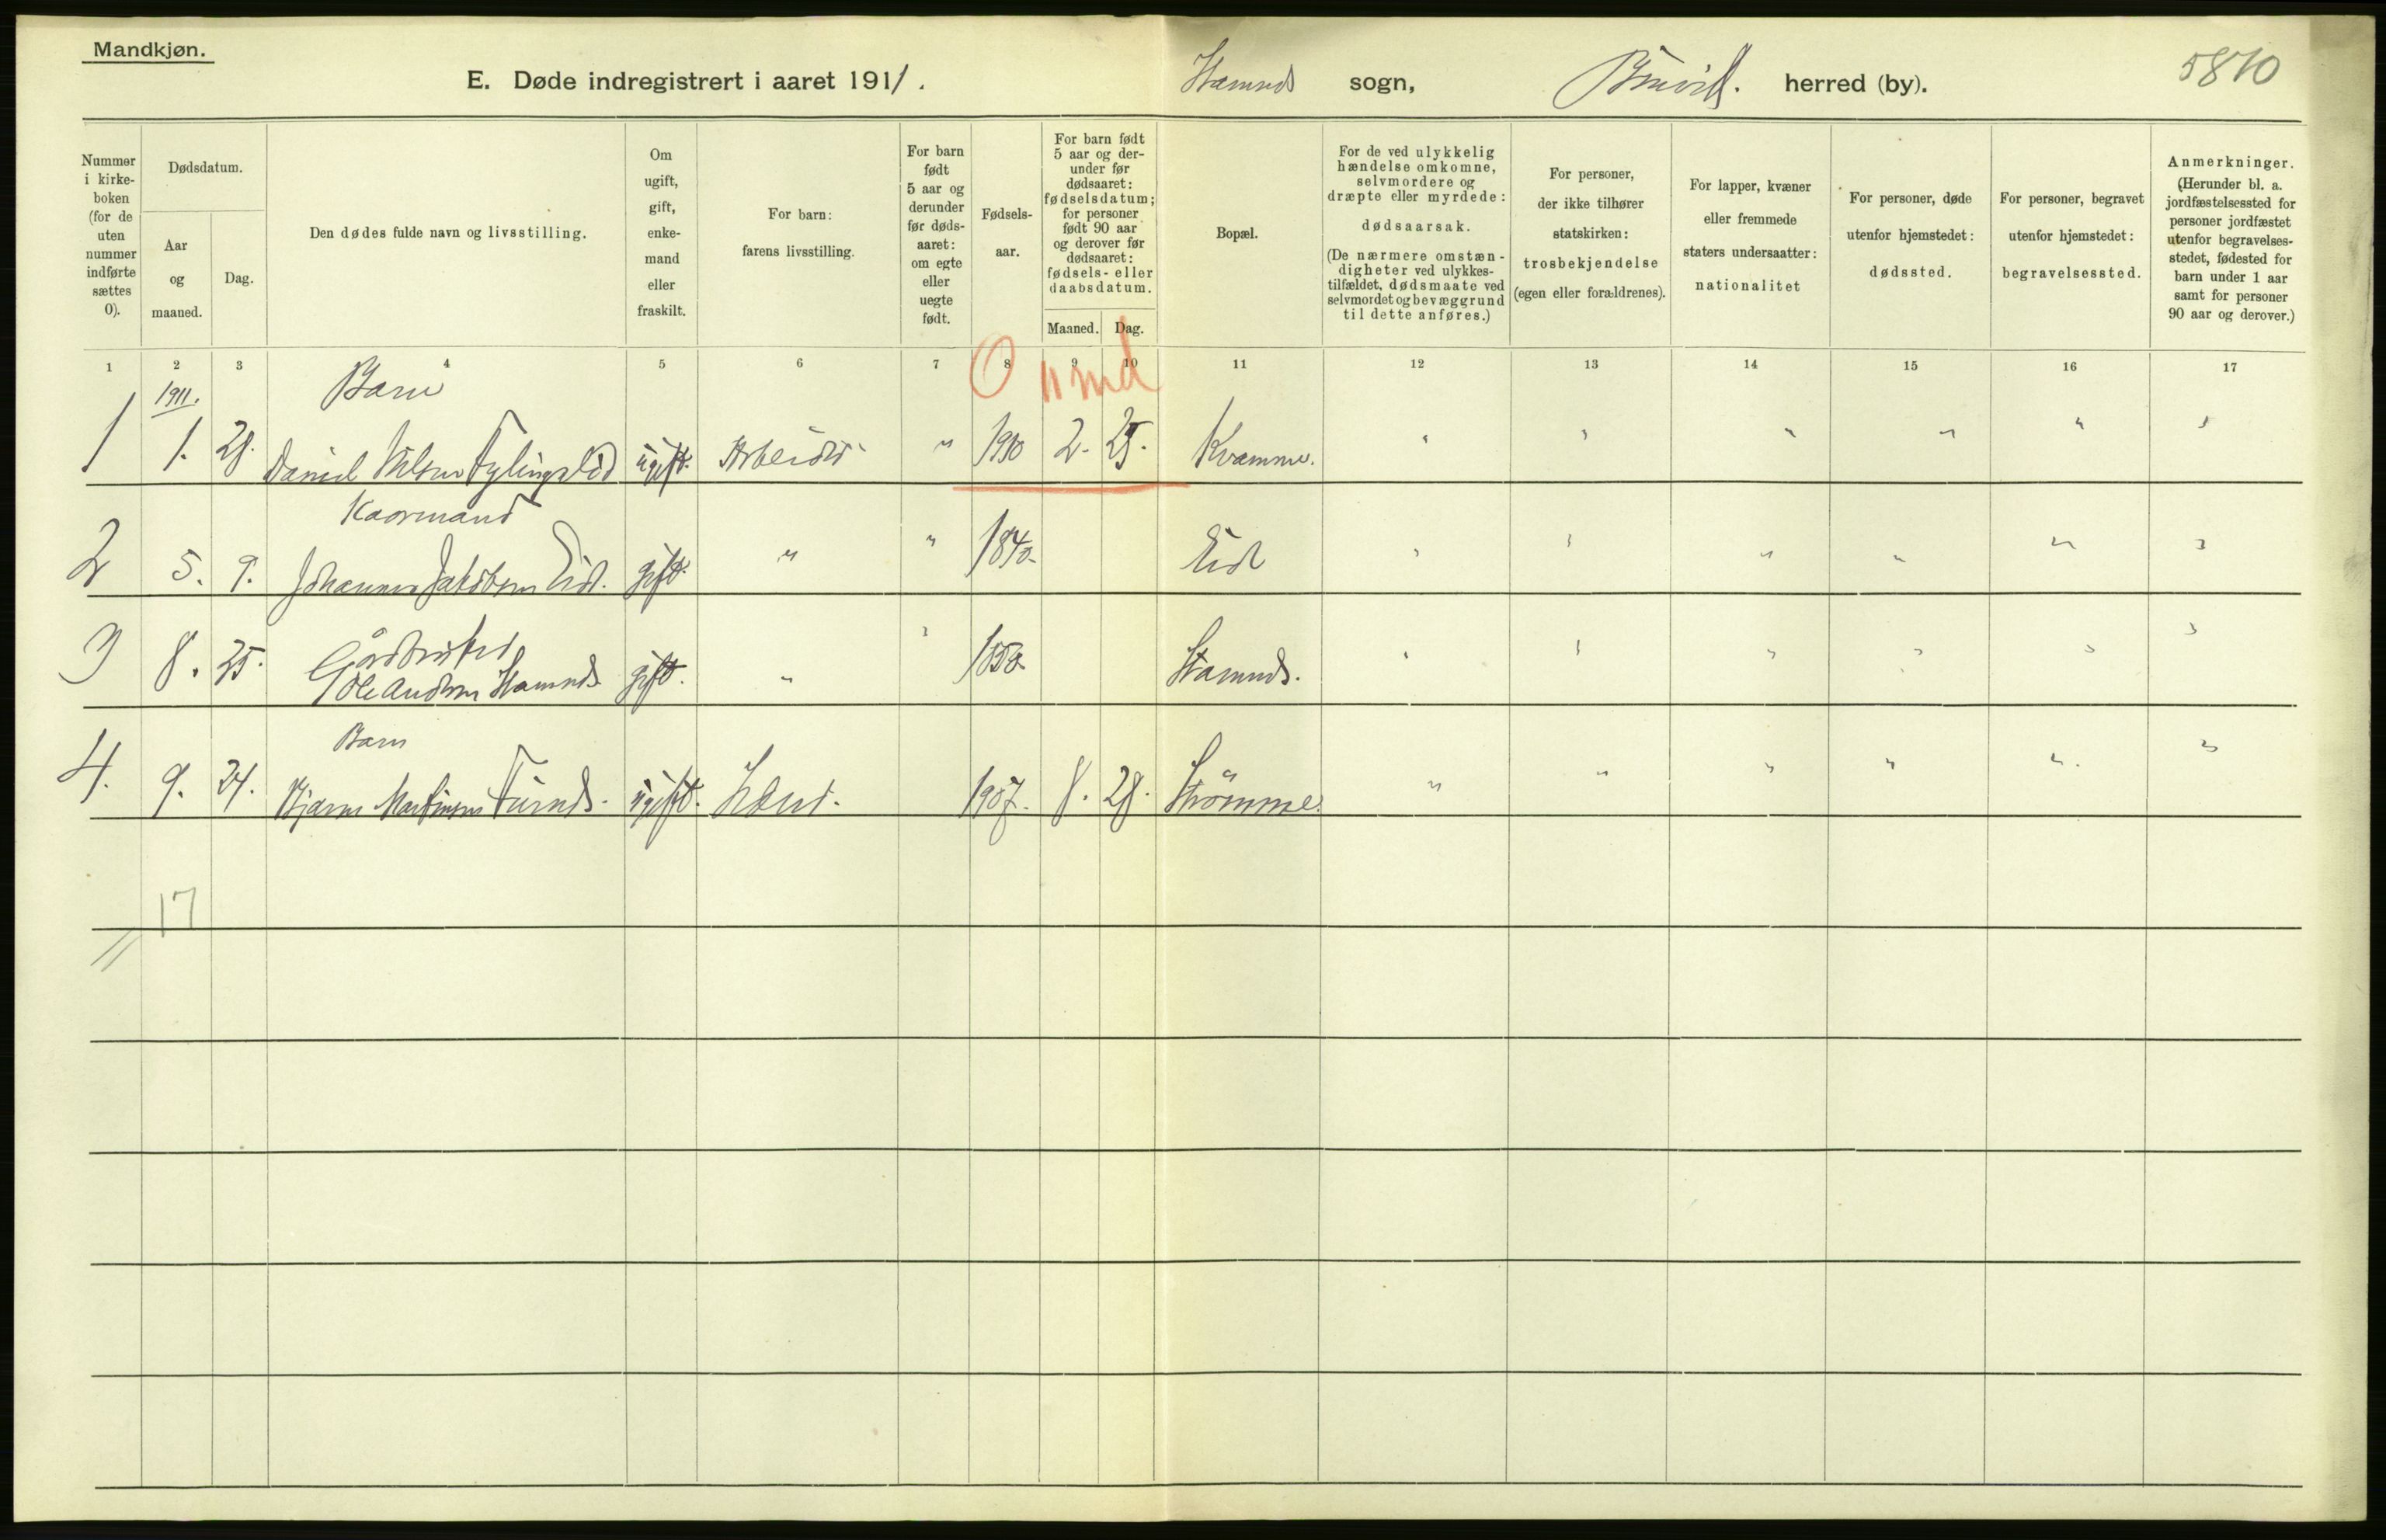 Mandkjøn.
E. Døde indregistrert i aaret 1911. Stamnes sogn, Bruvik. herred (by). 5810
Nummer i kirke-boken (for de uten nummer indførte sættes 0).
Dødsdatum.
Aar og maaned.
Dag.
Den dødes fulde navn og livsstilling.
Om ugift, gift, enke-mand eller fraskilt.
For barn: farens livsstilling.
For barn født 5 aar og derunder før døds-aaret: om egte eller uegte født.
Fødsels-aar.
For barn født 5 aar og der-under før dødsaaret: fødselsdatum; for personer født 90 aar og derover før dødsaaret: fødsels- eller daabsdatum.
Maaned. Dag.
Bopæl.
For de ved ulykkelig hændelse omkomne, selvmordere og dræpte eller myrdede: dødsaarsak. (De nærmere omstæn-digheter ved ulykkes-tilfældet, dødsmaate ved selvmordet og bevæggrund til dette anføres.)
For personer, der ikke tilhører statskirken: trosbekjendelse (egen eller forældrenes).
For lapper, kvæner eller fremmede staters undersaatter: nationalitet
For personer, døde utenfor hjemstedet: dødssted.
For personer, begravet utenfor hjemstedet: begravelsessted.
Anmerkninger. (Herunder bl. a. jordfæstelsessted for personer jordfæstet utenfor begravelses-stedet, fødested for barn under 1 aar samt for personer 90 aar og derover.)
1 2 3 4 5 6 7 8 9 10 11 12 13 14 15 16 17
1911. Barn 0 11 md
1 1. 28. Daniel Nilsen Fylingslid ugift. Arbeider " 1910 2. 25. Kvamme. " " " " " "
Kaarmand
2 5. 9. Johannes Jakobsen Eid. gift. " " 1840. Eid " " " " " "
Gårdbruker
3 8. 25. Ole Andersen Stamnes gift. " " 1850. Stamnes. " " " " " "
Barn
4. 9. 24. Bjarne Martinsen Furnes. ugift. 1907. 8. 28. Strömme. " " " " " "
17